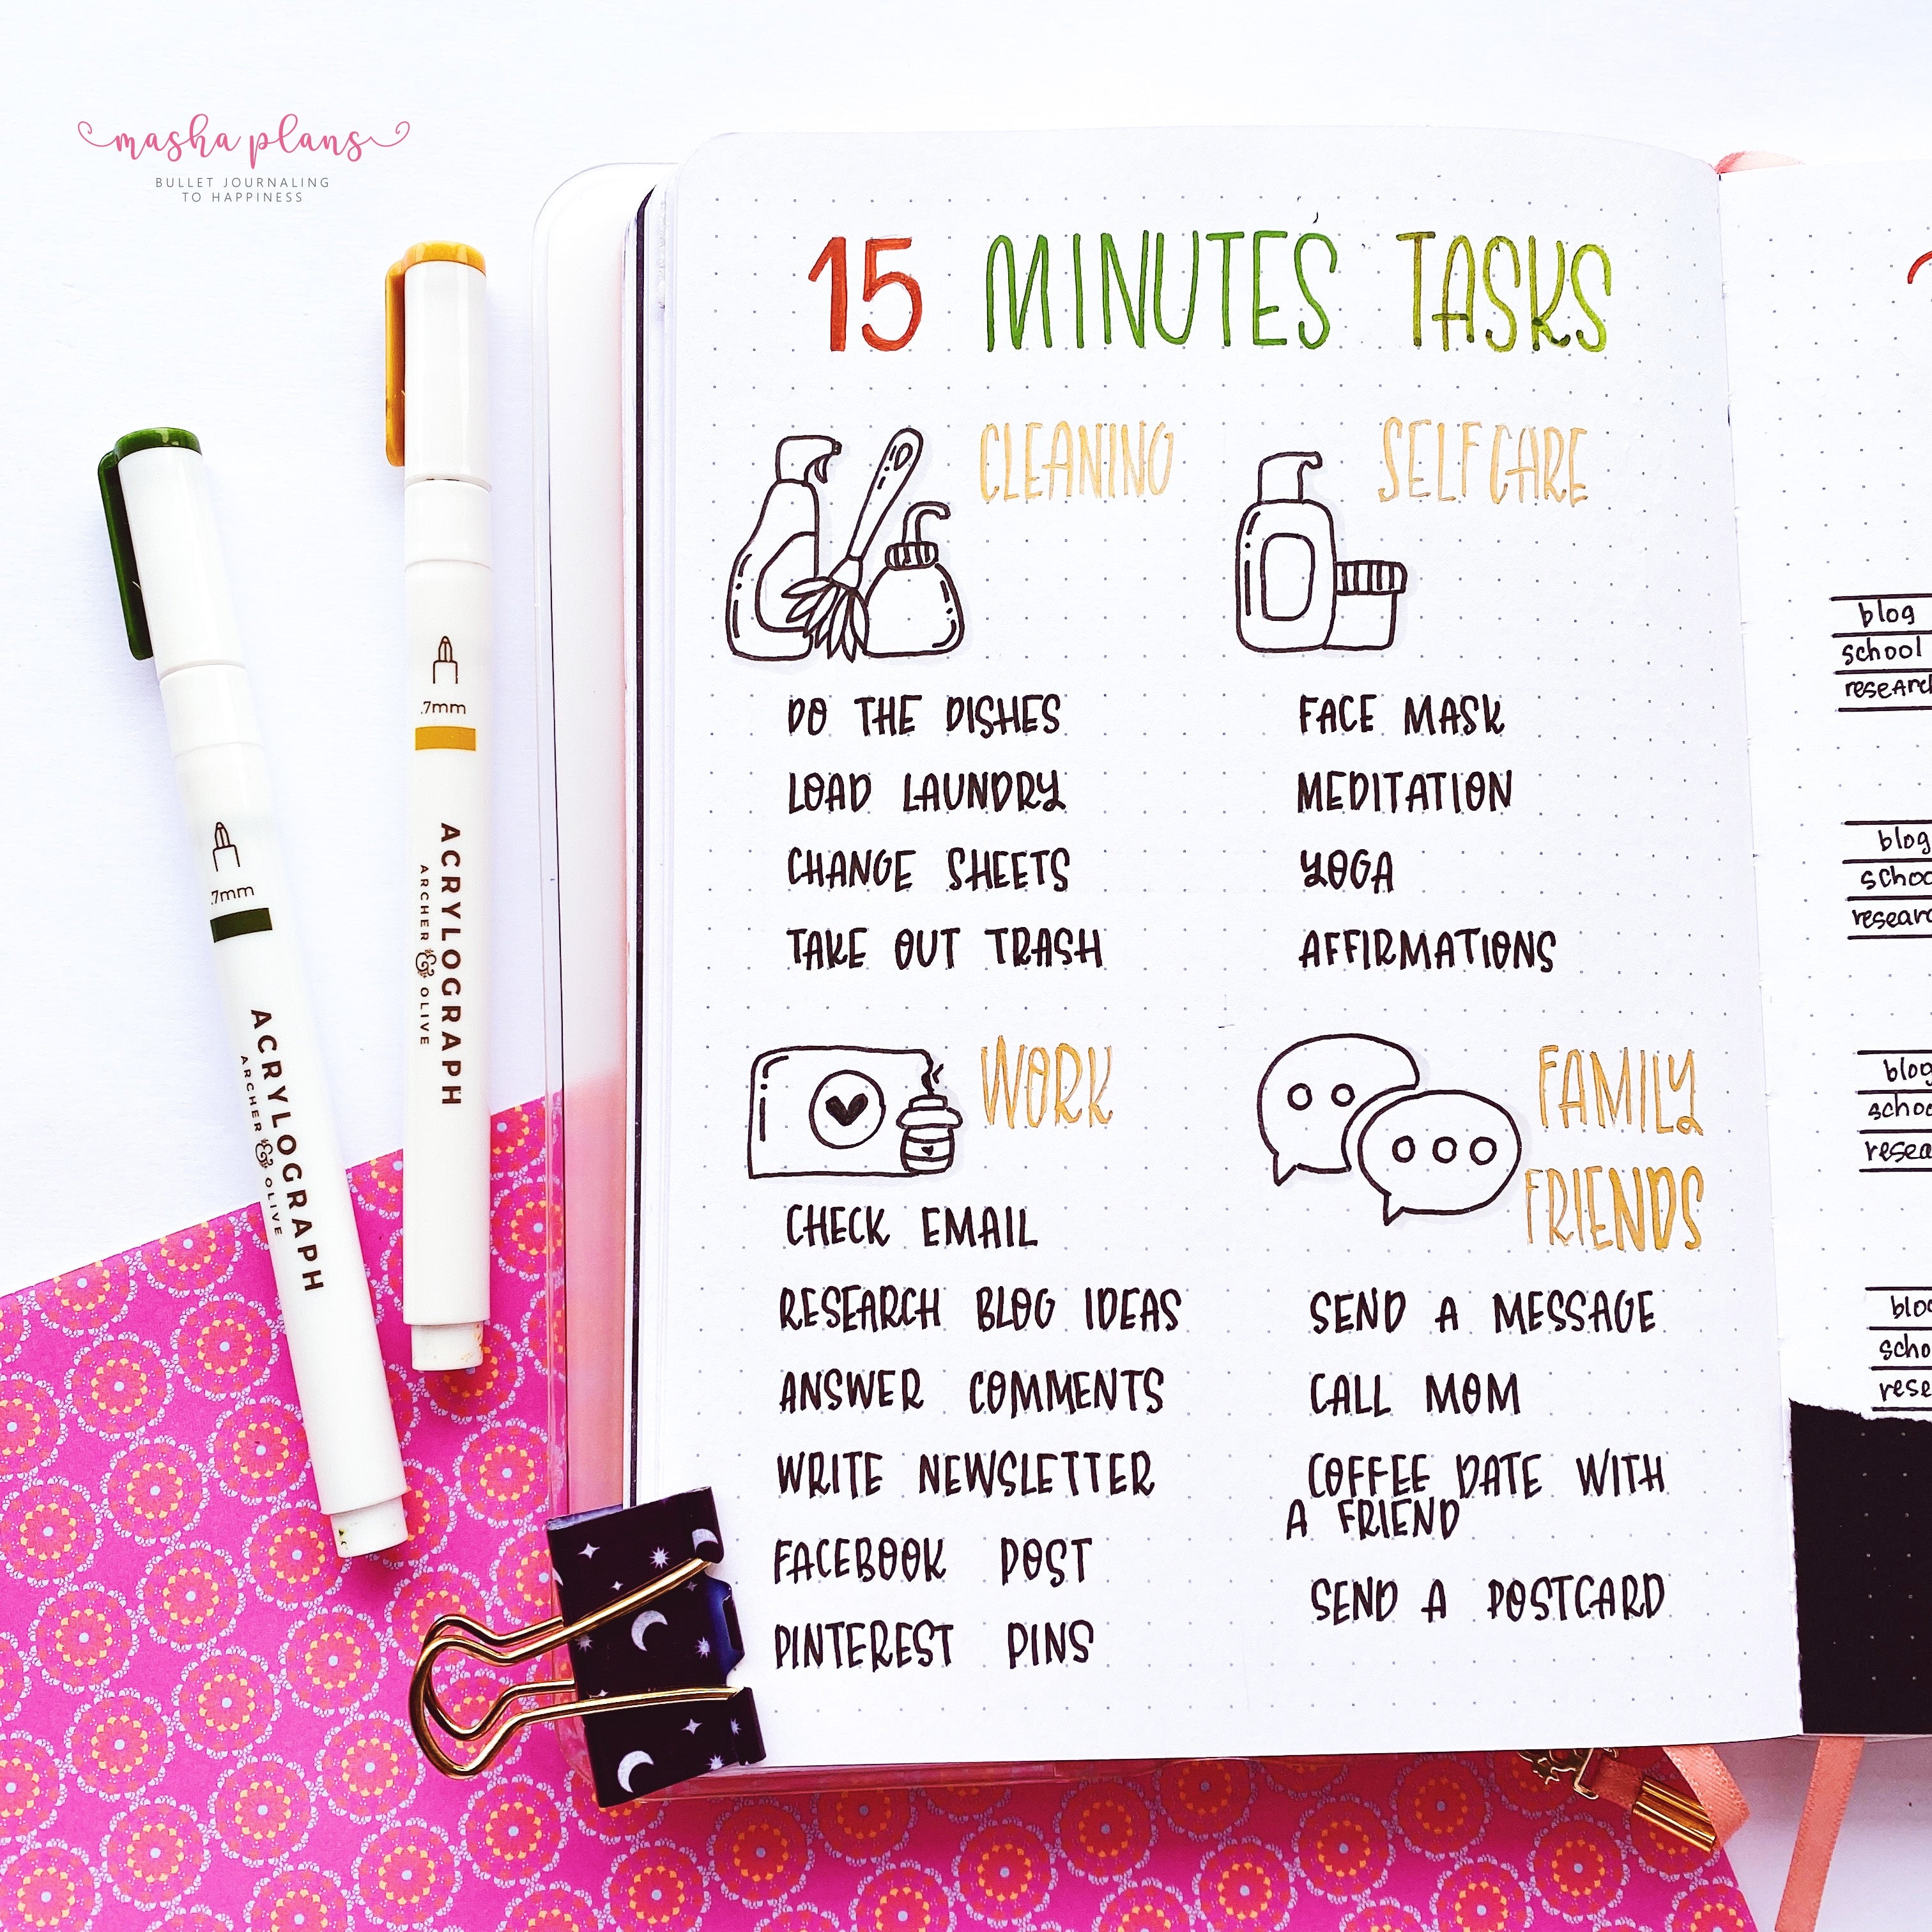 masha plans
BULLET JOURNALING
TO HAPPINESS
.7mm
ACRYLOGRAPH
ARCHER & OLIVE
.7mm
ACRYLOGRAPH
ARCHER & OLIVE
15 MINUTES TASKS
CLEANING
DO THE DISHES
LOAD LAUNDRY
CHANGE SHEETS
TAKE OUT TRASH
SELFCARE
FACE MASK
MEDITATION
YOGA
AFFIRMATIONS
WORK
CHECK EMAIL
RESEARCH BLOG IDEAS
ANSWER COMMENTS
WRITE NEWSLETTER
FACEBOOK POST
PINTEREST PINS
FAMILY
FRIENDS
SEND A MESSAGE
CALL MOM
COFFEE DATE WITH
A FRIEND
SEND A POSTCARD
blog
school
blog
blog